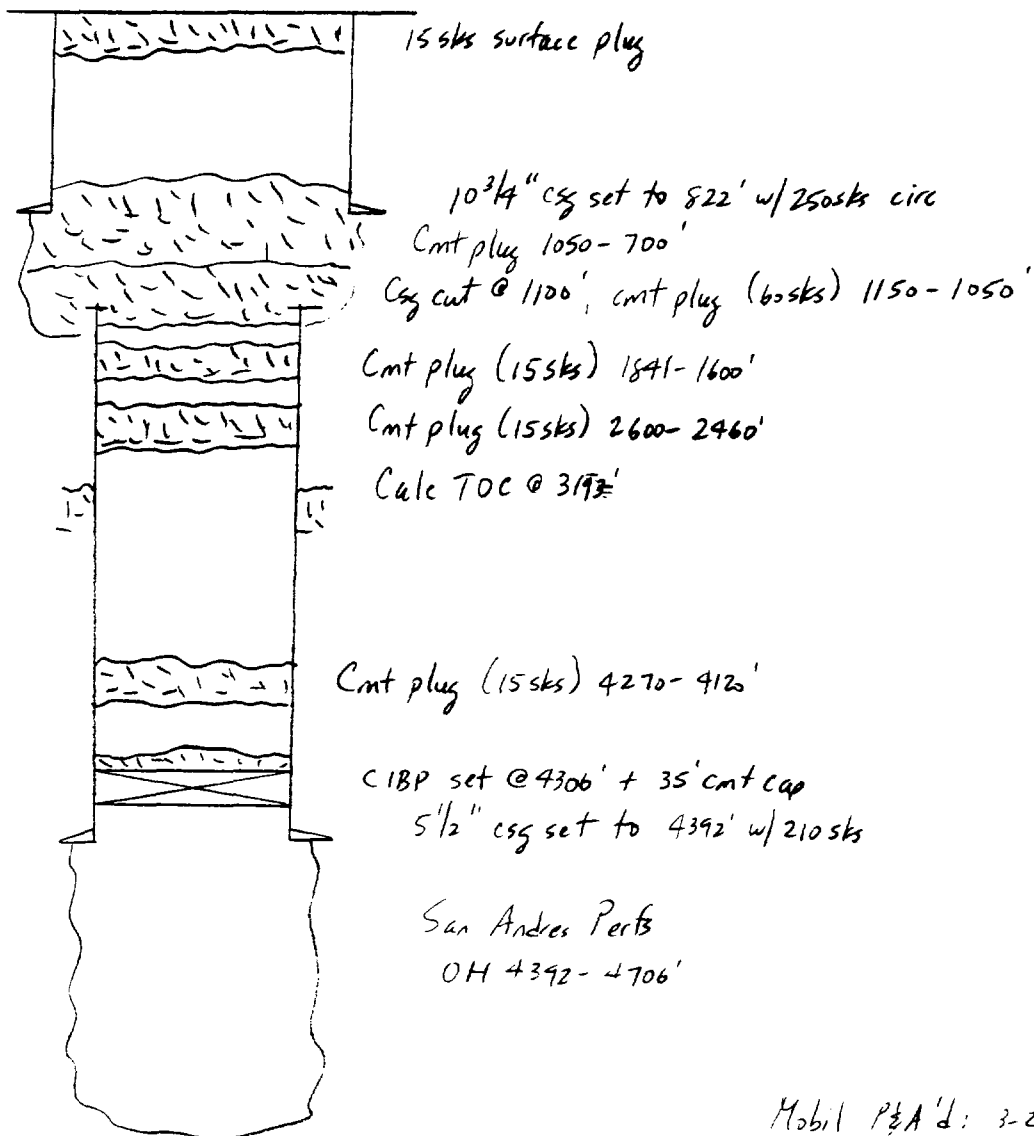 15 sks surface plug
10 3/4" csg set to 822' w/250sks circ
Cmt plug 1050-700'
Csg cut @ 1100', cmt plug (60sks) 1150-1050'
Cmt plug (15sks) 1841-1600'
Cmt plug (15sks) 2600-2460'
Calc TOC @
Cmt plug (15sks) 4270-4120'
CIBP set @ 4306' + 35' cmt cap
5 1/2" csg set to 4392' w/ 210 sks
San Andres Perfs
OH 4392-4706'
Mobil P&A'd: 3-2